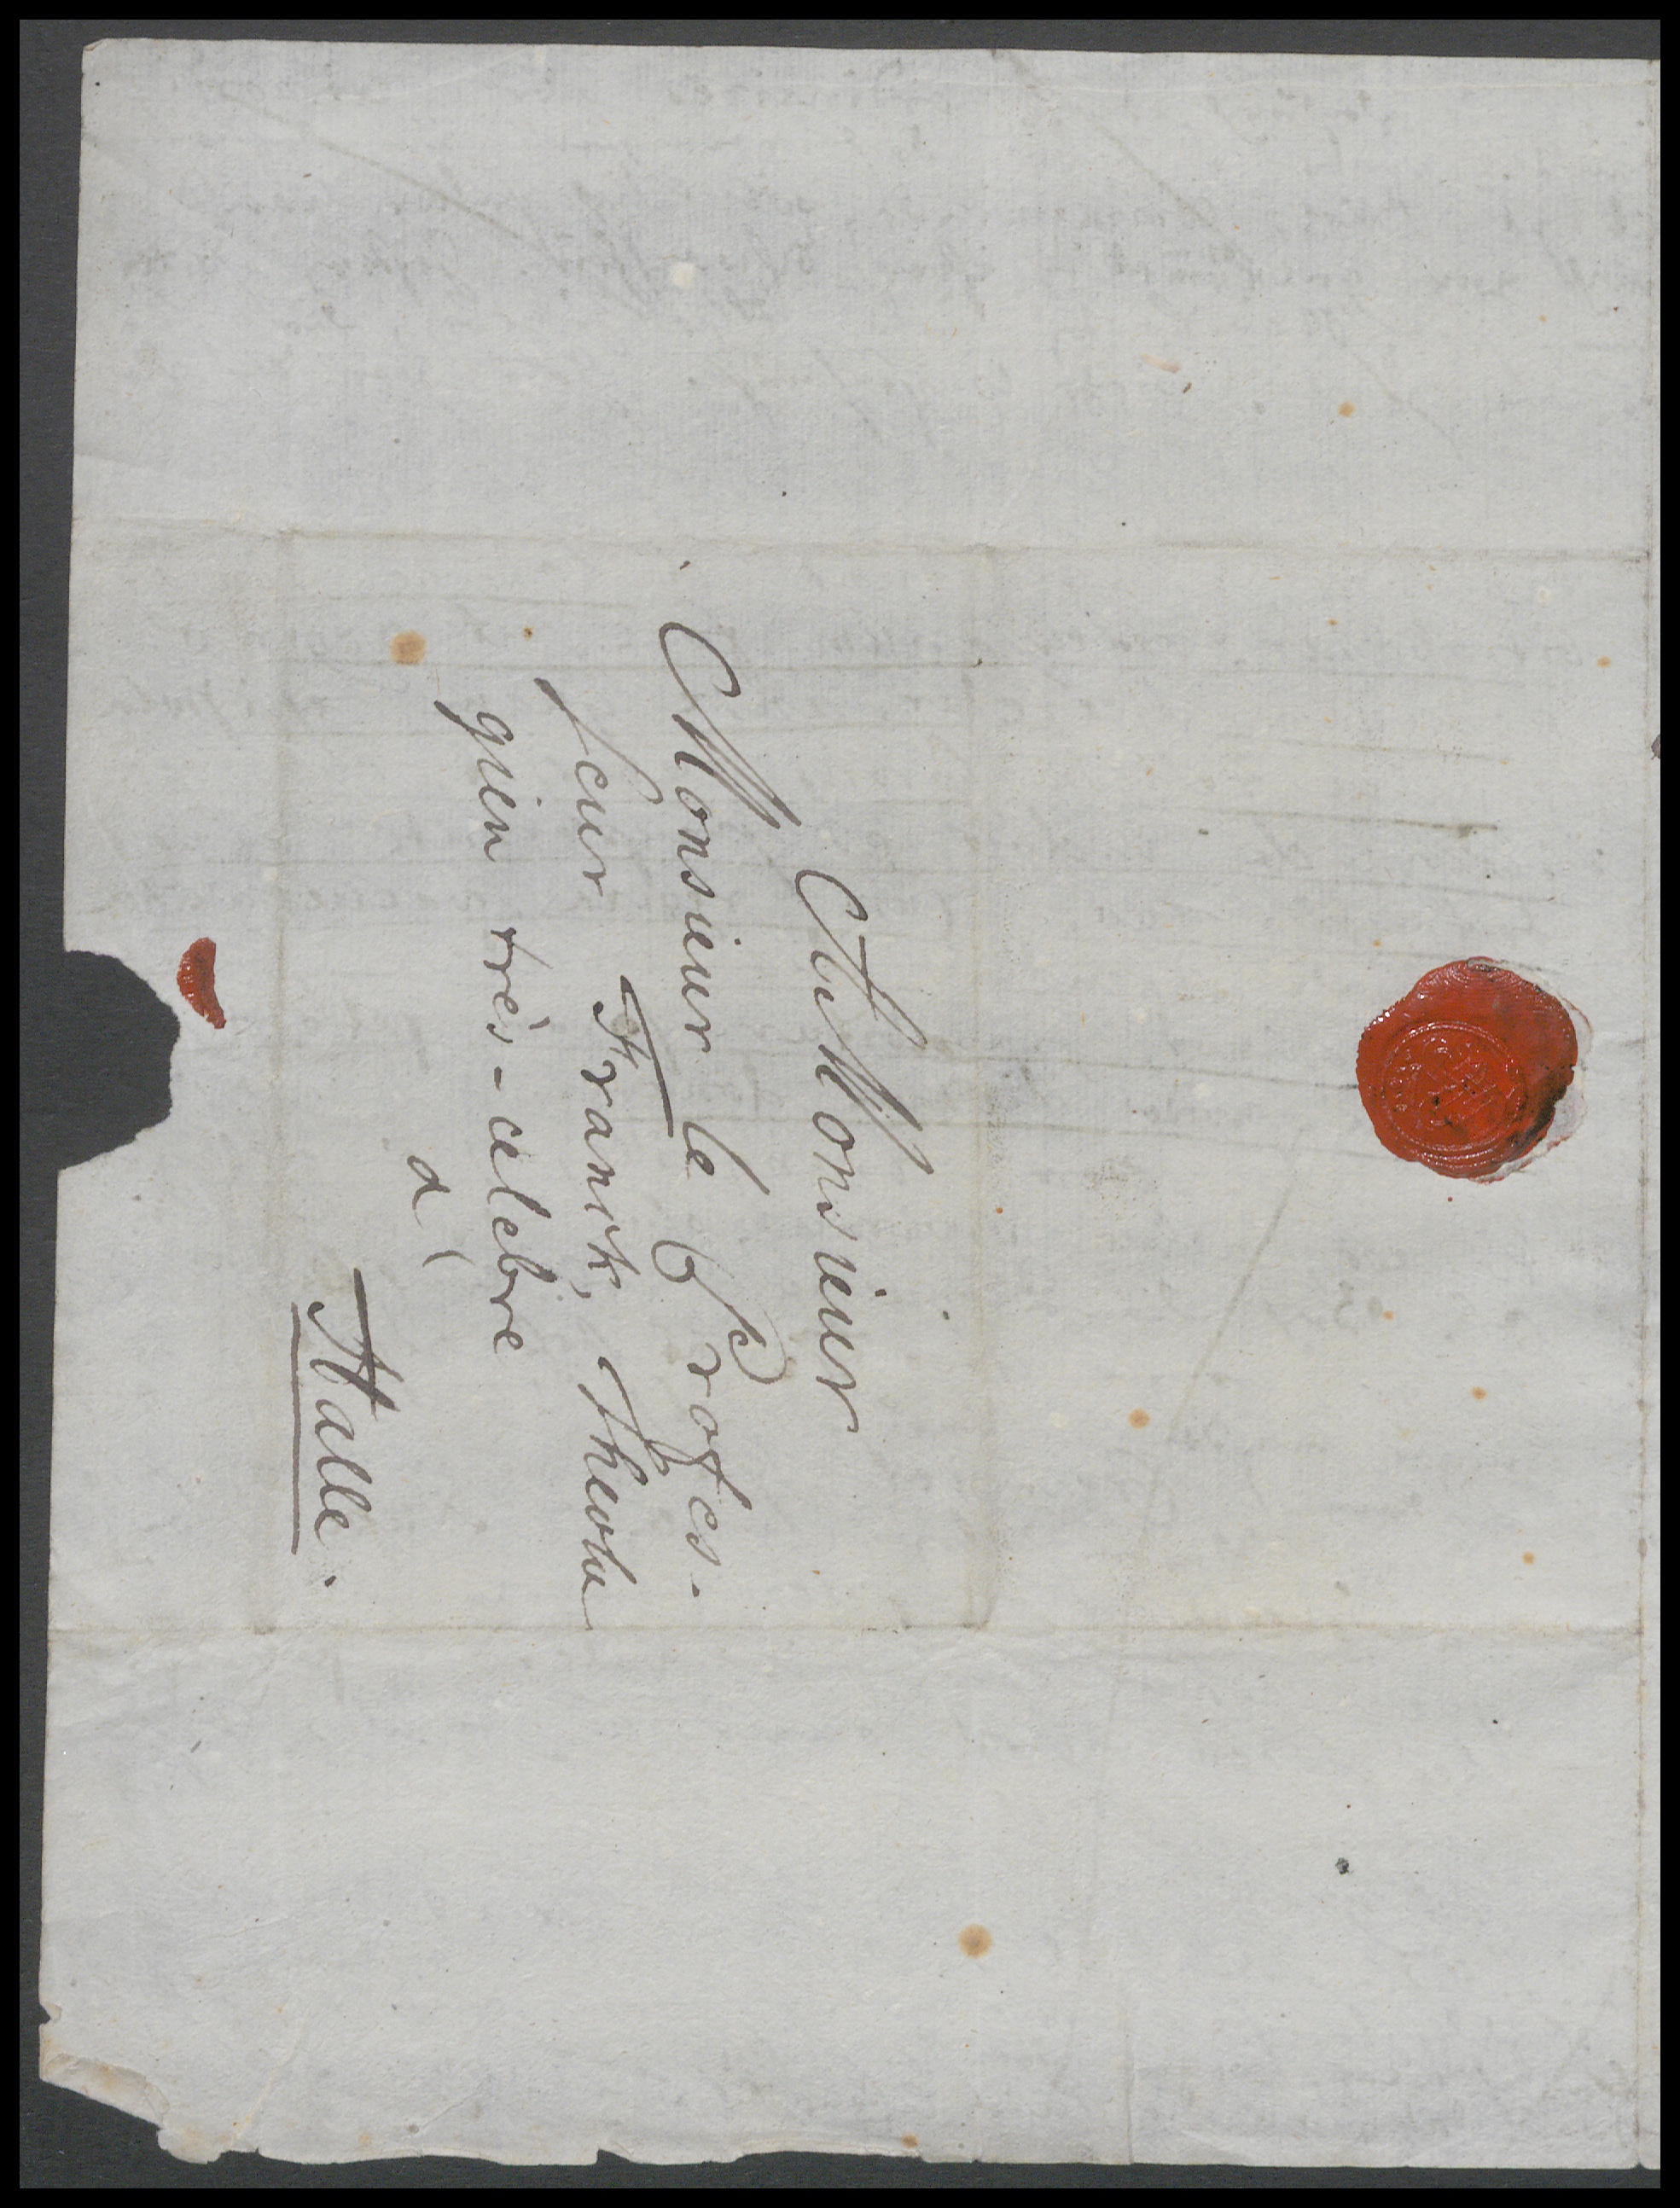 A Monsieur
Monsieur le Profes-
seur Franck, Theolo
gien très-celebre
à
Halle.